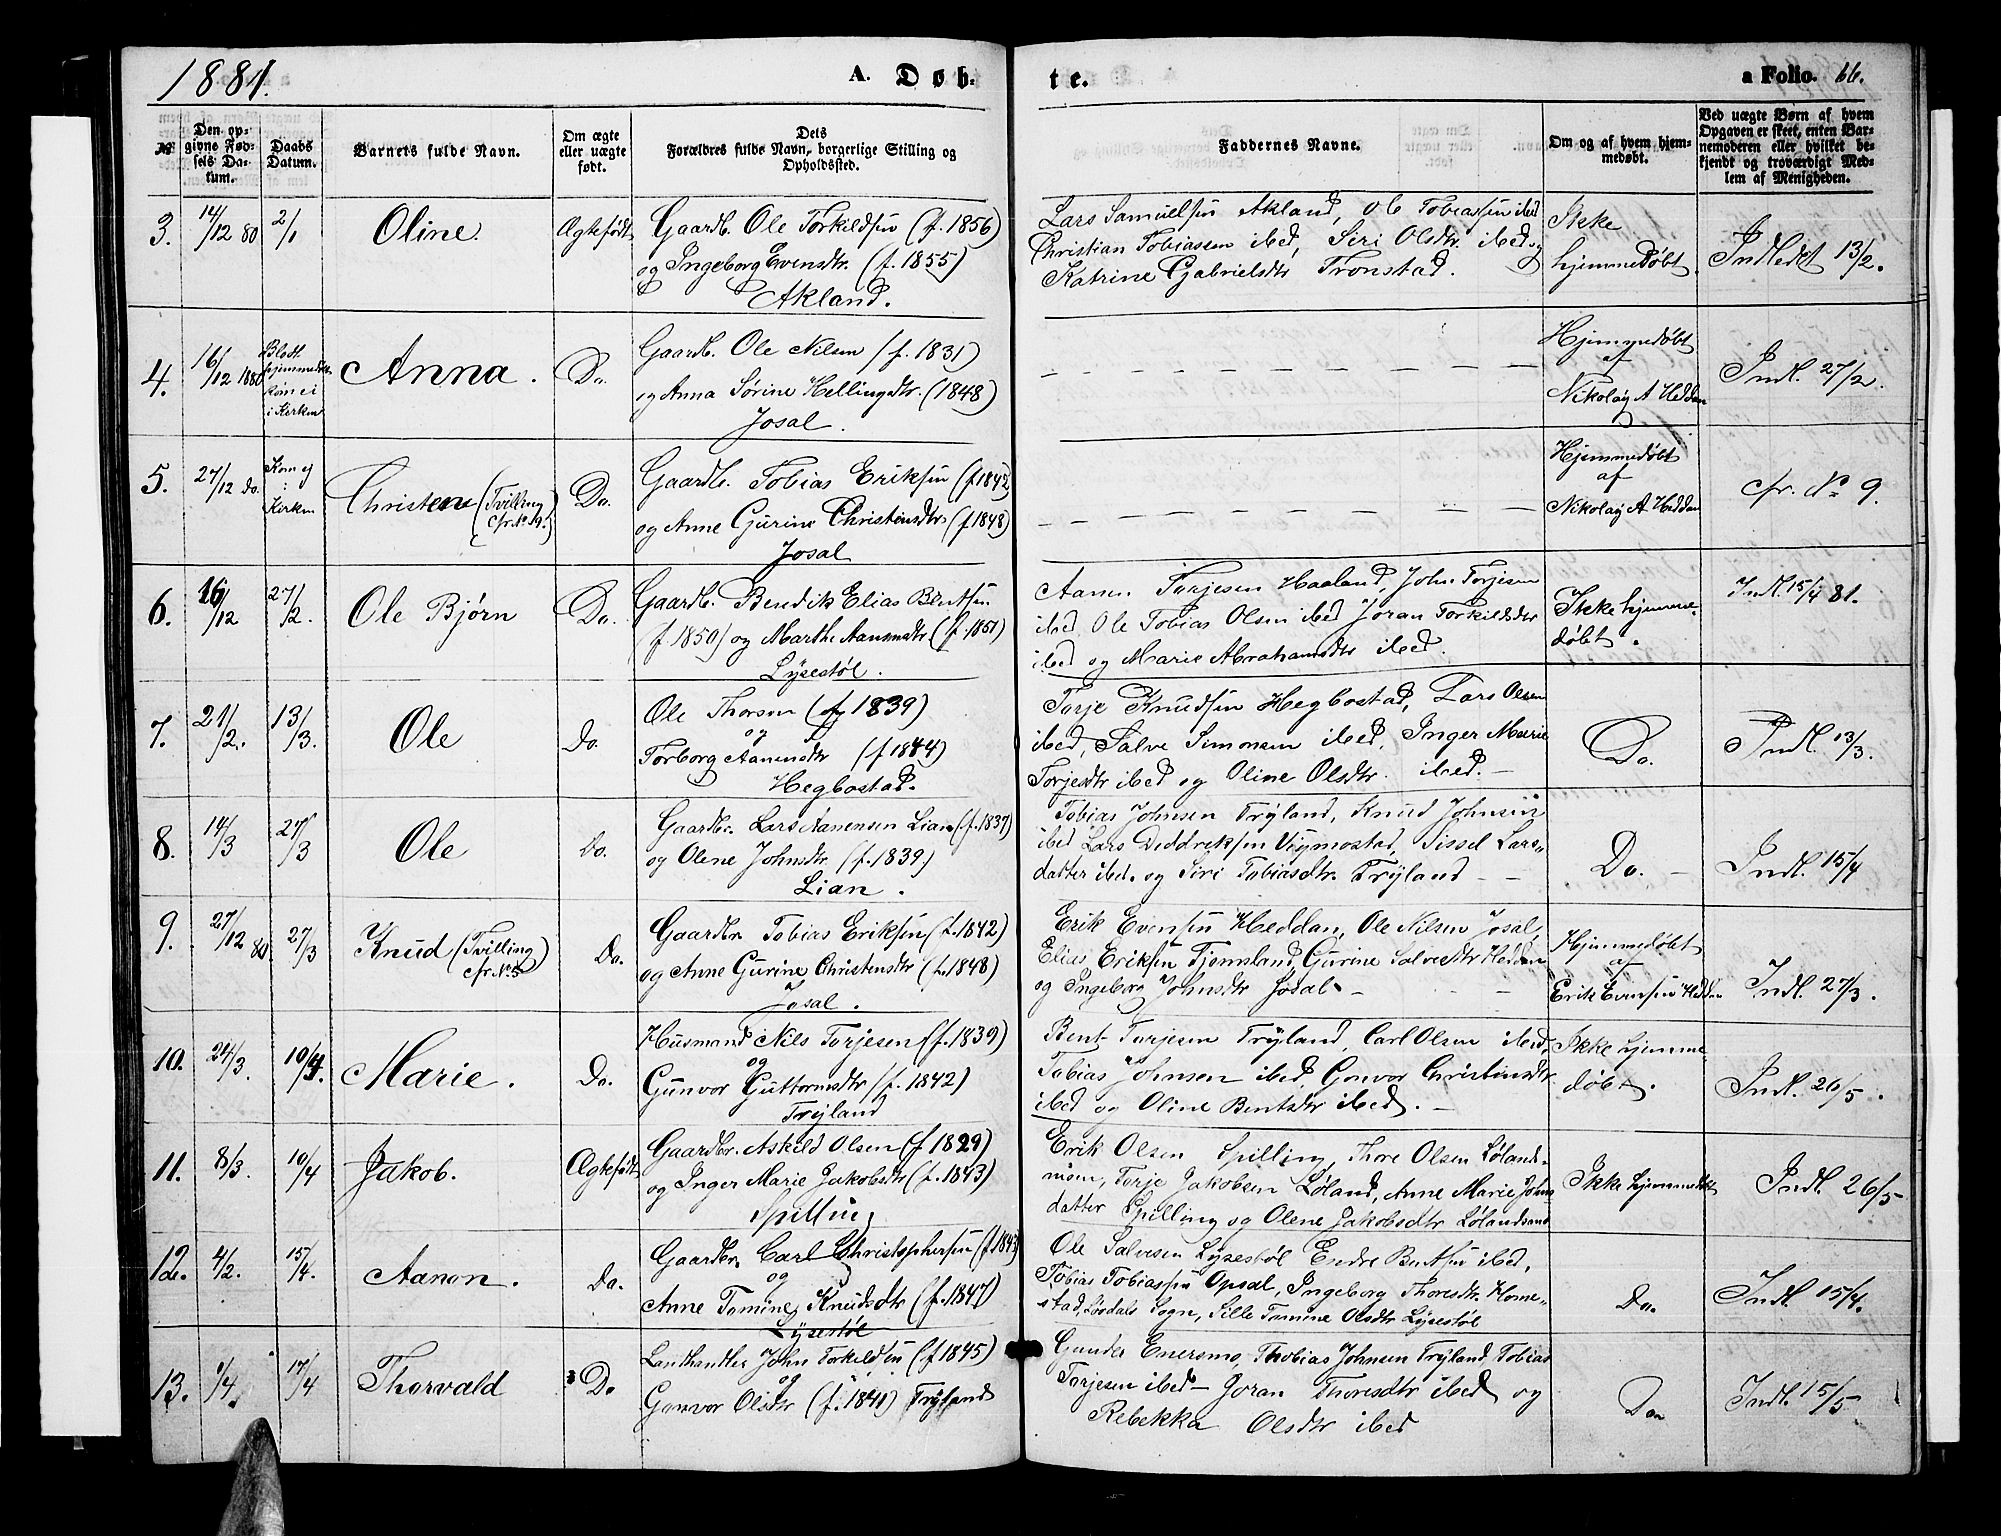 1881.
A. Døb-
te.
a Folio. 66.
№
Den op-
givne Fød-
sels Da-
tum.
Daabs
Datum.
Barnets fulde Navn.
Om ægte
eller uægte
født.
Dets
Forældres fulde Navn, borgerlige Stilling og
Opholdssted.
Faddernes Navne.
Om og af hvem hjem-
medøbt.
Ved uægte Børn af hvem
Opgaven er skeet, enten Bar-
nemoderen eller hvilket be-
kjendt og troværdigt Med-
lem af Menigheden.
3.
14/12 80
2/1
Oline.
Ægtefødt
Gaardb. Ole Torkildsen (f. 1856)
og Ingeborg Evensdtr. (f. 1855)
Akland.
Lars Samuelsen Akland, Ole Tobiassen ibed
Christian Tobiassen ibed, Siri Olsdtr. ibed og
Katrine Gabrielsdtr Tronstad.
Ikke
hjemmedøbt.
Indledet 13/2.
4.
16/12 1880
Blot
hjemmedøbt
Kom ei
i Kirken
Anna.
Do.
Gaardb. Ole Nilsen (f. 1831)
og Anna Sørine Hellingsdtr. (1848)
Josal.
Hjemmedøbt
af
Nikolay A Heddan
Indl. 27/2.
5.
27/12 do.
Kom ej
i
Kirken
Christen (Tvilling
cfr. No 9.)
Do.
Gaardb. Tobias Eriksen (f 1842)
og Anne Gurine Christensdtr. (f. 1848)
Josal
Hjemmedøbt
af
Nikolay A Heddan
cfr. No 9.
6.
16/12
27/2.
Ole Bjørn
Do.
Gaardb. Bendik Elias Bentsen
f. 1850) og Marthe Aanensdtr (f. 1851)
Lysestøl.
Aanen Torjesen Haaland, John Torjesen
ibed, Ole Tobias Olsen ibed Joran Torkildsdtr
ibed og Marie Abrahamsdtr ibed.
Ikke hjemme-
døbt.
Indl. 15/4 81.
7.
21/2.
13/3.
Ole
Do.
Ole Thorsen (f 1839)
og
Torborg Aanensdtr (f 1844)
Hegbostad.
Torje Knudsen Hegbostad, Lars Olsen
ibed, Salve Simonsen ibed, Inger Marie
Torjesdtr ibed og Oline Olsdtr. ibed.
Do.
Indl. 13/3.
8.
14/3
27/3
Ole
Do.
Gaardbr. Lars Aanensen Lian (f. 1837)
og Olene Johnsdtr (f. 1839)
Lian.
Tobias Johnsen Tryland, Knud Johnsen
ibed Lars Diddriksen Vigmostad, Sissel Lars-
datter ibed. og Siri Tobiasdtr. Tryland
Do.
Indl. 15/4
9.
27/12 80
27/3
Knud (Tvilling
cfr. No 5)
Do.
Gaardbr. Tobias Eriksen (f. 1842)
og Anne Gurine Christensdtr (f. 1848)
Josal.
Erik Evensen Heddan, Ole Nilsen Josal,
Elias Eriksen Tjomsland, Gurine Salvesdtr Heddan
og Ingeborg Johnsdtr Josal
Hjemmedøbt
af
Erik Evensen Heddan
Indl. 27/3.
10.
24/3.
10/4.
Marie.
Do.
Husmand Nils Torjesen (f. 1839)
og
Gunvor Guttormsdtr (f. 1842)
Tryland
Bent Torjesen Tryland, Carl Olsen ibed,
Tobias Johnsen ibed, Gonvor Christensdtr
ibed og Oline Bentsdtr ibed.
Ikke hjemme
døbt.
Indl. 26/5.
11.
8/3.
10/4
Jakob.
Ægtefødt
Gaardbr. Askild Olsen (f 1829)
og Inger Marie Jakobsdtr (f. 1843)
Spilling
Erik Olsen Spilling, Thore Olsen Løland-
mom, Torje Jakobsen Løland, Anne Marie Johns
datter Spilling og Olene Jakobsdtr Lølandsmo
Ikke hjemmedøbt
Indl. 26/5
12.
4/2.
15/4.
Aanon.
Do.
Gaardbr. Carl Christophersen (f. 1843)
og
Anne Tomine Knudsdtr (f. 1847)
Lysestøl
Ole Salvesen Lysestøl Endre Bentsen ibed,
Tobias Tobiassen Opsal, Ingeborg Thoresdtr. Home-
stad, Løvdals Sogn, Sille Tomine Olsdtr Lysestøl
Do.
Indl. 15/4.
13.
1/4.
17/4
Thorvald
Do
Landhandler John Torkildsen (f 1845)
og
Gonvor Olsdtr (f. 1841) Tryland
Gunder Enersmo, Thobias Johnsen Tryland, Tobias
Torjesen ibed Joran Thoresdtr ibed og
Rebekka Olsdtr ibed
Do
Indl. 15/5